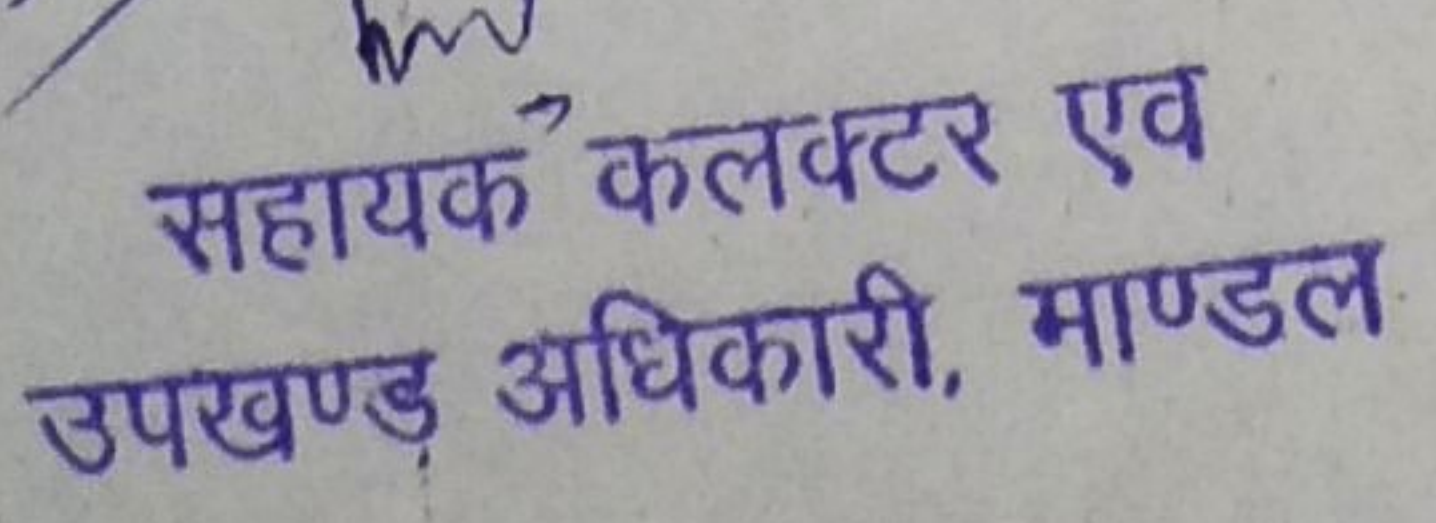 सहायक कलक्टर एव
उपखण्ड़ अधिकारी, माण्डल